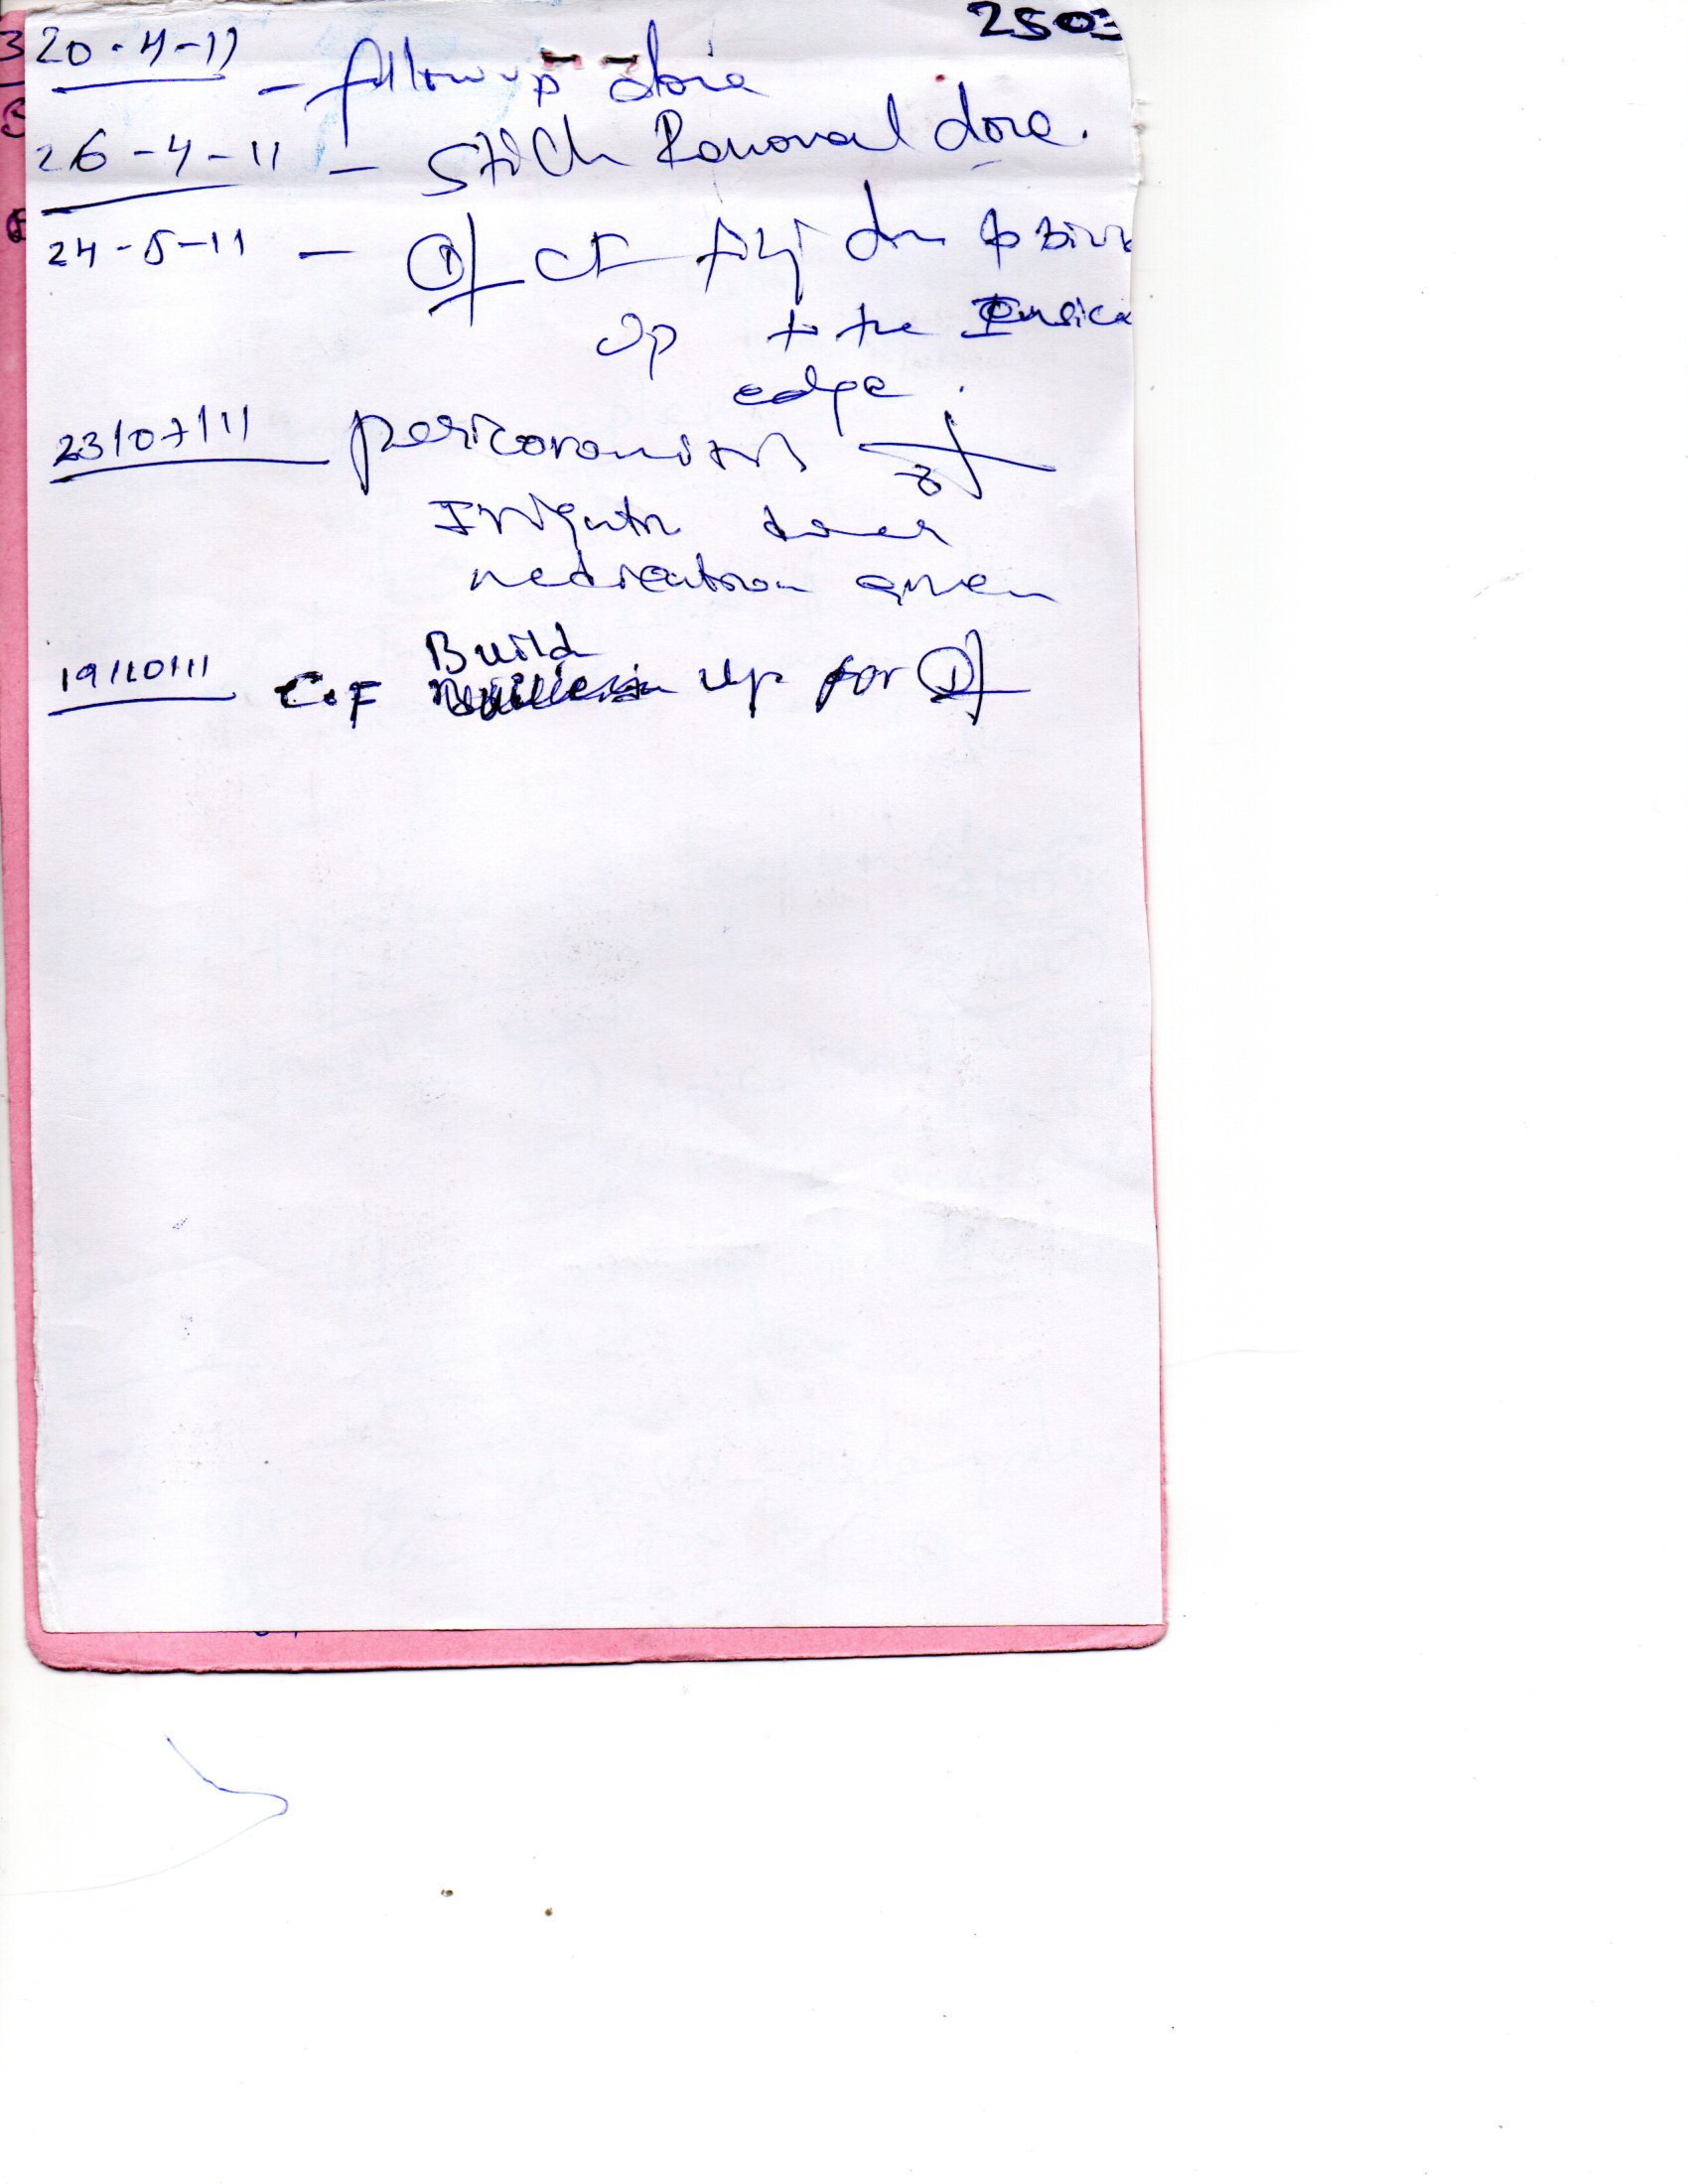 2503
20-4-11 - follow up done
26-4-11 - Stich Removal done.
24-5-11 - 1 CF done
up to the
edge.
23/07/11 pericoronitis 8
Irrigation done
medication given
Build
19/10/11 C.F up for 1